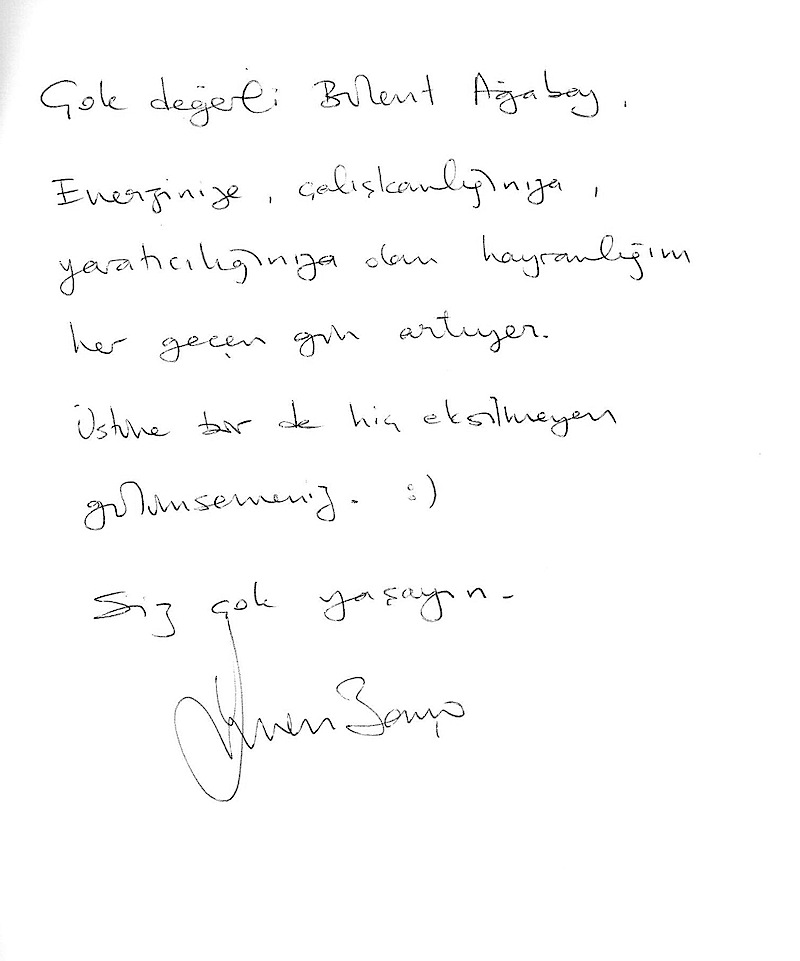 Çok değerli Bülent Ağabey,
Enerjinize, çalışkanlığınıza,
yaratıcılığınıza olan hayranlığım
her geçen gün artıyor.
Üstüne bir de hiç eksilmeyen
gülümsemeniz. :)
Siz çok yaşayın.